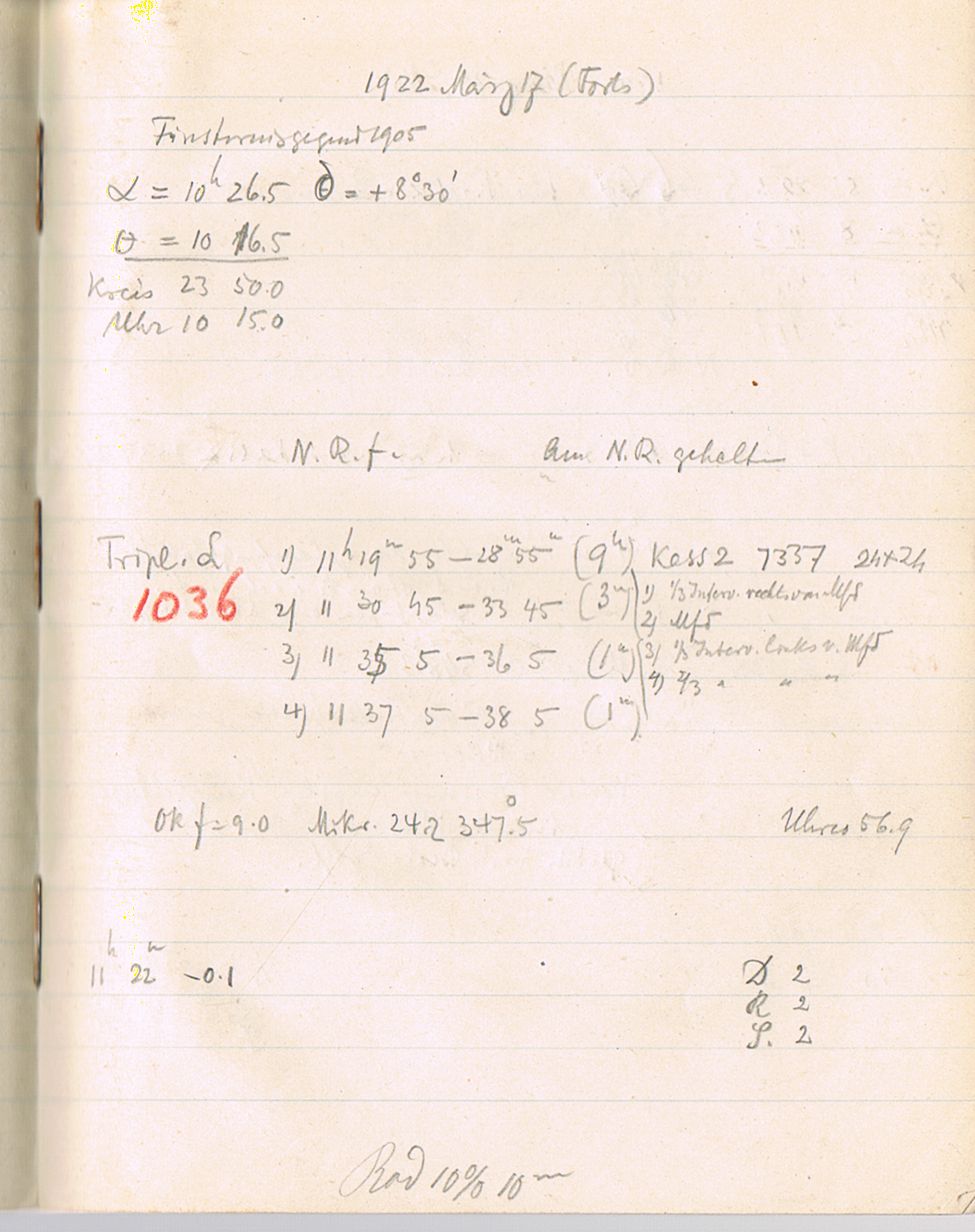 1922 März 17 (Forts)
Finsternisgegend 1905
α = 10h 26.5 δ = +8°30'
θ = 10 16.5
Kreis 23 50.0
Uhr 10 15.0
N. R. f. Am N.R. gehalten
Tripl. d 1) 11h 19m 55 – 28m 55 (9m) Kass 2 7337 24×24
1036 2) 11 30 45 – 33 45 (3m) 1) 1/3 Interv. rechts von Mfd
2) Mfd
3) 11 35 5 – 36 5 (1m) 3) 1/3 Interv. links v. Mfd
4) 2/3 " " "
4) 11 37 5 – 38 5 (1m)
Ok f = 9.0 Mikr. 24.2 347°.5 Uhreo 56.9
11h 22m –0.1 D 2
R 2
S. 2
Rad 10% 10m